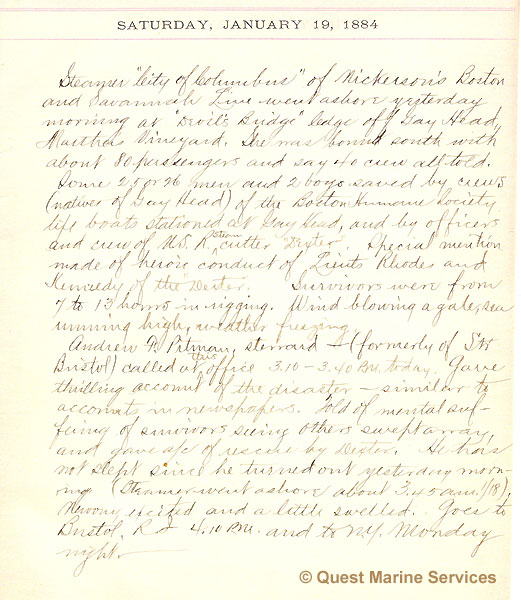 SATURDAY, JANUARY 19, 1884
Steamer "City of Columbus" of Nickerson's Boston
and Savannah Line went ashore yesterday
morning at "Devil's Bridge" ledge off Gay Head,
Marthas Vineyard. She was bound south with
about 80 passengers and say 40 crew all told.
Some 25 or 26 men and 2 boys saved by crews
(natives of Gay Head) of the Boston Humane Society
life boats stationed at Gay Head, and by officers
and crew of U.S. R. steam cutter "Dexter". Special mention
made of heroic conduct of Lieuts Rhodes and
Kennedy of the "Dexter. Survivors were from
7 to 13 hours in rigging. Wind blowing a gale, sea
running high, weather freezing
Andrew A. Pitman, steward — (formerly of Str
Bristol) called at this office 3.10 – 3.40 P.M. today. Gave
thrilling account of the disaster — similar to
accounts in newspapers. Told of mental suf-
fering of survivors seeing others swept away,
and gave a/c of rescue by Dexter. He has
not slept since he turned out yesterday morn-
ing (Steamer went ashore about 3.45 a.m. 1/18),
Nervous, excited and a little swelled. Goes to
Bristol, R I 4.10 P.M. and to N.Y. Monday
night. —
© Quest Marine Services